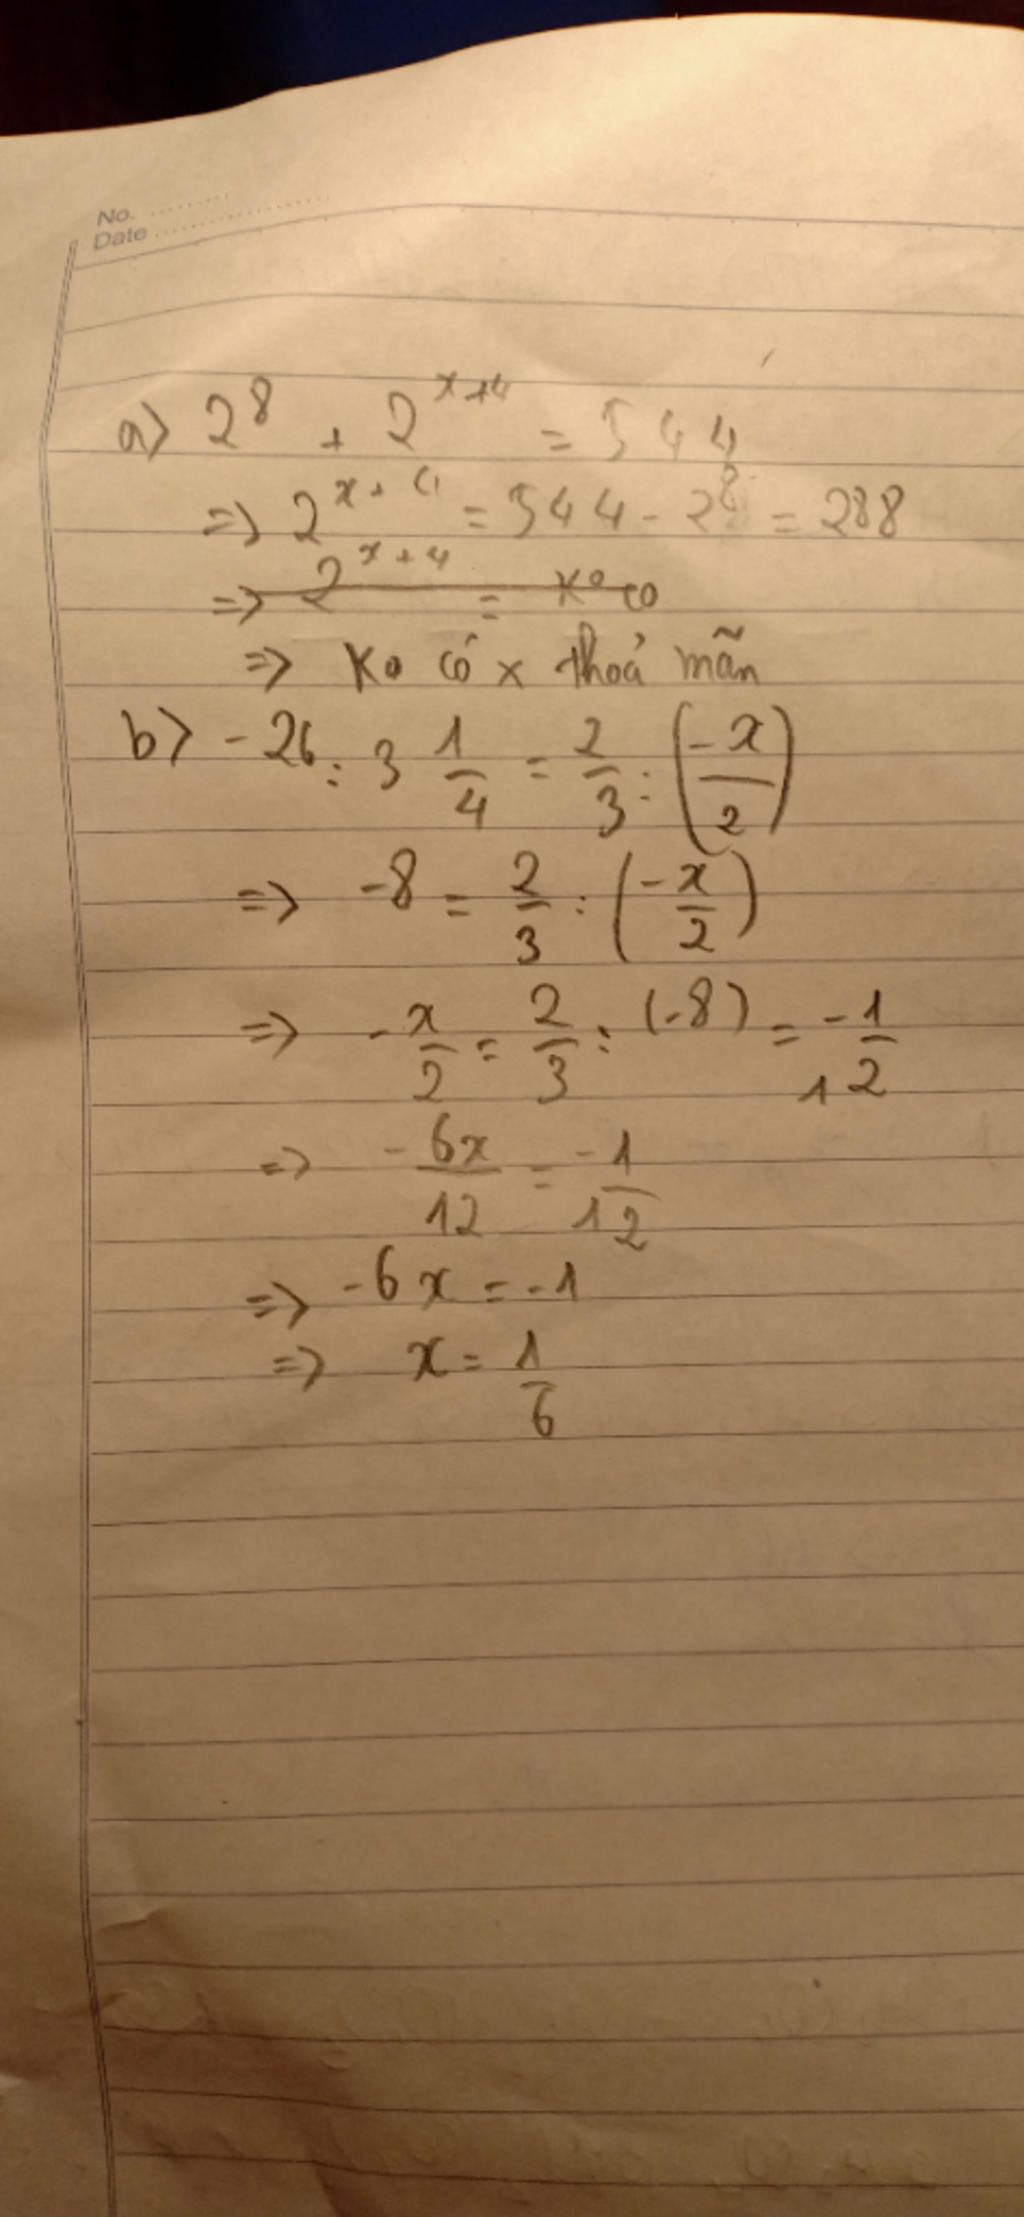 No. ........
Date ................
a) 2^8 + 2^{x+4} = 544
=> 2^{x+4} = 544 - 2^8 = 288
=> 2^{x+4} = ko co
=> Ko có x thoả mãn
b) -26 : 3 1/4 = 2/3 : (-x/2)
=> -8 = 2/3 : (-x/2)
=> -x/2 = 2/3 : (-8) = -1/12
=> -6x/12 = -1/12
=> -6x = -1
=> x = 1/6